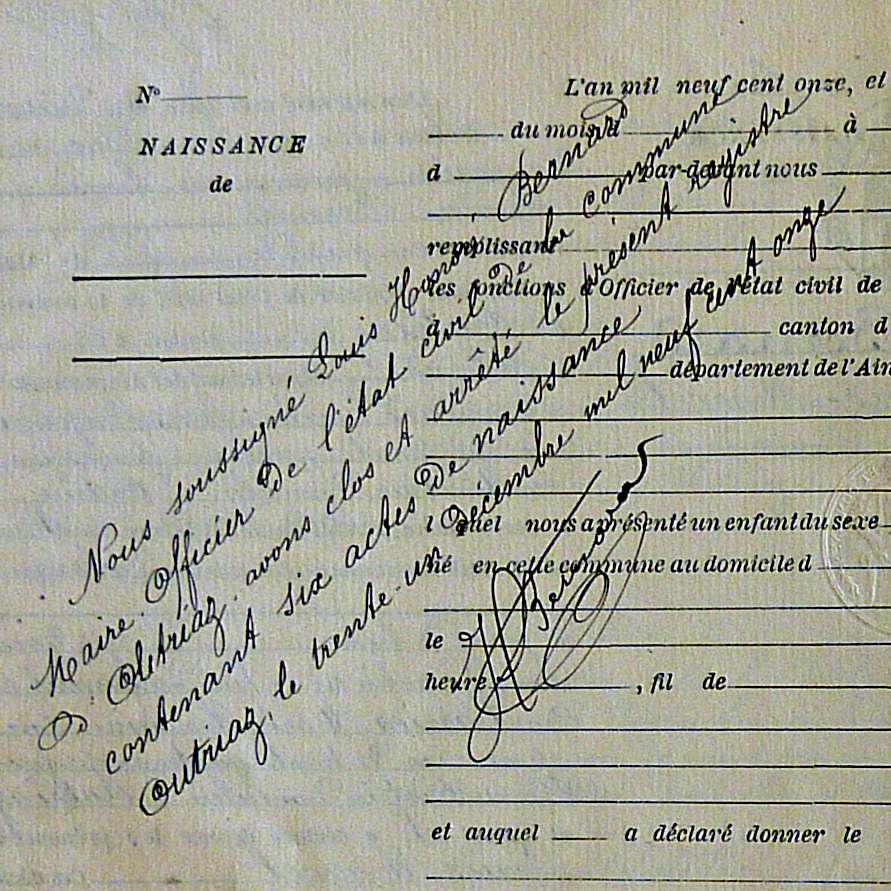 N°
NAISSANCE
de
L'an mil neuf cent onze, et
du mois d à
d par-devant nous
remplissant
les fonctions d'Officier de l'état civil de
d canton d
département de l'Ain
l quel nous a présenté un enfant du sexe
né en cette commune au domicile d
le
heure , fil de
et auquel a déclaré donner le
Nous soussigné Louis Honoré Bernard
Maire Officier de l'état civil de la commune
D'Outriaz, avons clos et arrêté le présent registre
contenant six actes de naissance
Outriaz, le trente-un Décembre mil neuf cent onze
Bernard